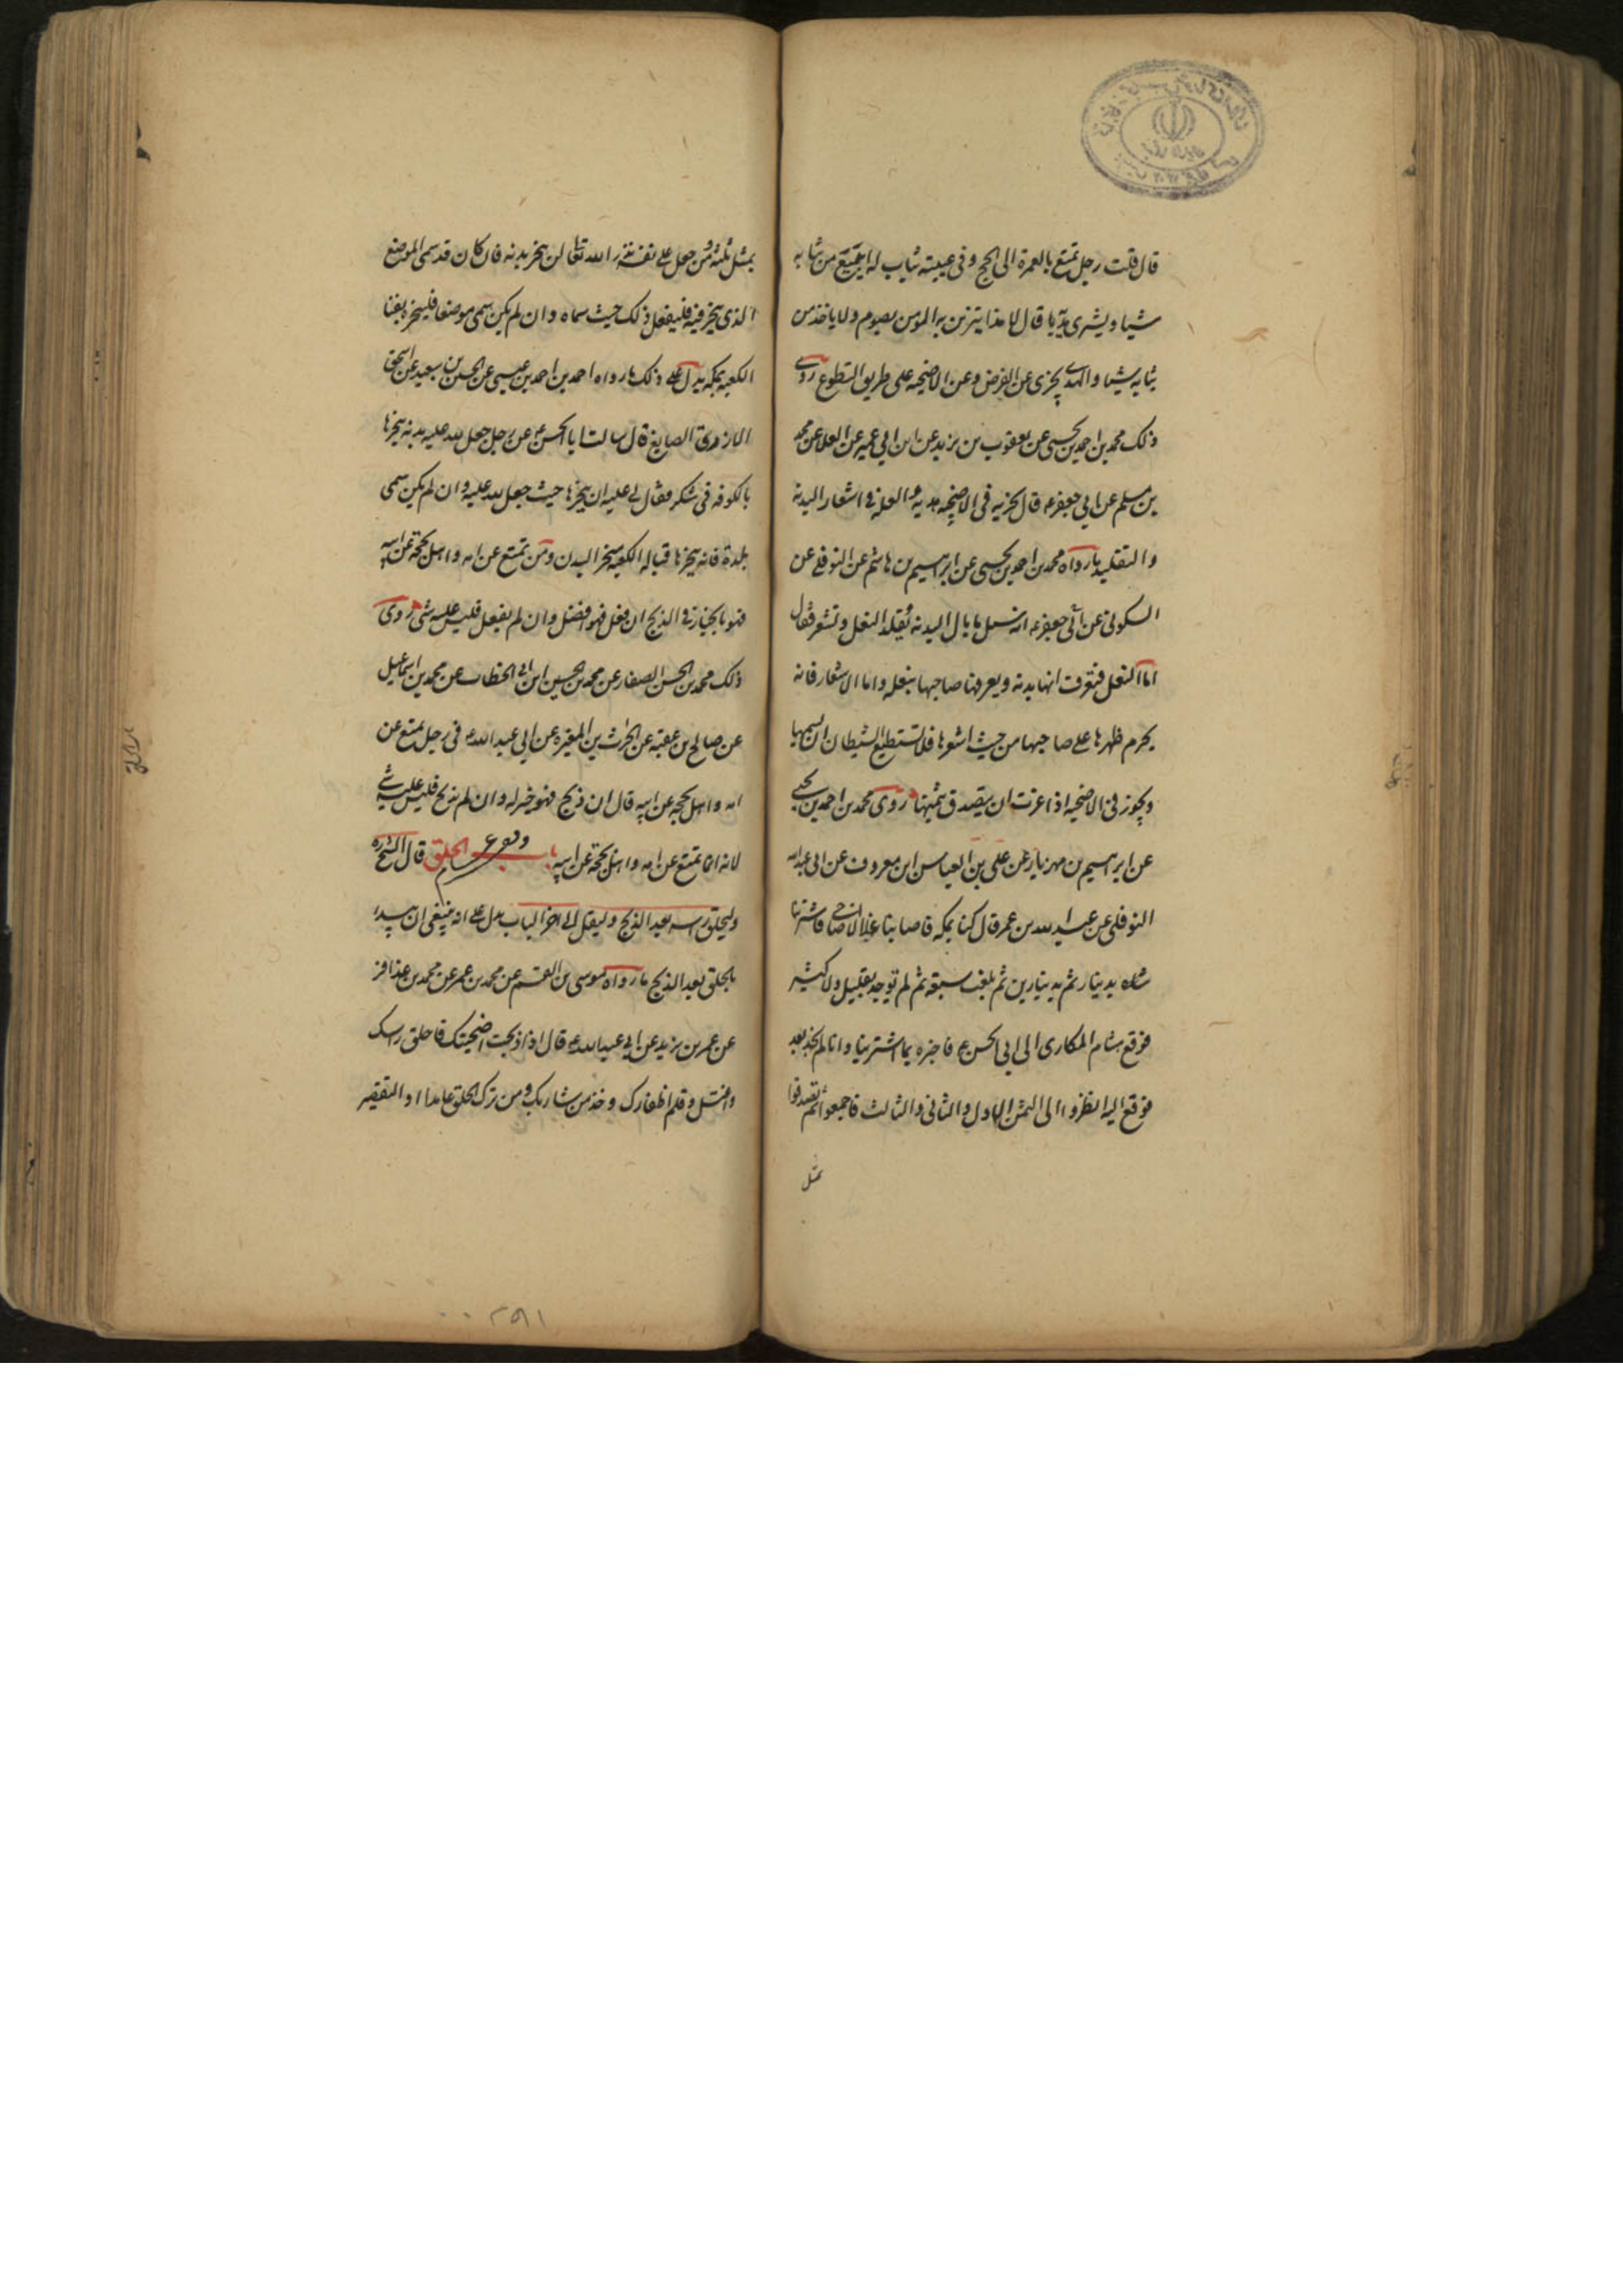 قال قلت رجل تمتع بالعمرة الى الحج وفي عيبته ثياب له ايبيع من ثيابه
شيا ويشرى بدنة قال لا هذا يتزين به المومن يصوم ولا ياخذ من
ثيابه شيا والهدى يجزى عن الفرض وعن الاضحيه على طريق التطوع روى
ذلك محمد بن احمد بن يحيى عن يعقوب بن يزيد عن ابن ابي عمير عن العلا عن محمد
بن مسلم عن ابي جعفر ع قال يجزيه في الاضحيه هديه والعلة في اشعار البدنه
والتقليد ما رواه محمد بن احمد بن يحيى عن ابراهيم بن هاشم عن النوفلي عن
السكوني عن ابي جعفر ع انه سئل ما بال البدنه تقلد النعل وتشعر فقال
اما النعل فتعرف انها بدنه ويعرفها صاحبها بنعله واما الاشعار فانه
يحرم ظهرها على صاحبها من حيث اشعرها فلا تستطيع الشيطان ان يسمها
ويجوز في الاضحيه اذا عزت ان يتصدق بثمنها روى محمد بن احمد بن يحيى
عن ابراهيم بن مهزيار عن على بن العباس ابن معروف عن ابي عبد الله
النوفلي عن عبد الله بن عمر قال كنا بمكه فاصابنا غلا الاضاحي فاشترينا
شاه بدينار ثم بدينارين ثم بلغت سبعة ثم لم توجد بقليل ولا كثير
فوقع هشام المكارى الى ابي الحسن ع فاخبره بما اشترينا وانا لم نجد بعد
فوقع اليه انظروا الى الثمن الاول والثاني والثالث فاجمعوا ثم تصدقوا
بمثل
بمثل ثلثه ومن جعل على نفسه نذرا لله تعالى ان ينحر بدنه فان كان قد سمى الموضع
الذي ينحر فيه فليفعل ذلك حيث سماه وان لم يكن سمى موضعا فلينحره بفنا
الكعبه بمكه يدل على ذلك ما رواه احمد بن احمد بن عيسى عن الحسن بن سعيد عن اسحق
الازدى الصايغ قال سالت ابا الحسن ع عن رجل جعل لله عليه بدنه ينحرها
بالكوفه في شكر فقال لي عليه ان ينحرها حيث جعل لله عليه وان لم يكن سمى
بلدة فانه ينحرها قباله الكعبه منحر البدن ومن تمتع عن امه واهل بحجه عن ابيه
فهو بالخيار في الذبح ان فعل فهو افضل وان لم يفعل فليس عليه شى روى
ذلك محمد بن الحسن الصفار عن محمد بن الحسين ابن ابي الخطاب عن محمد بن اسماعيل
عن صالح بن عقبه عن الحرث بن المغيره عن ابي عبد الله ع في رجل تمتع عن
امه واهل بحجه عن ابيه قال ان ذبح فهو خير له وان لم يذبح فليس عليه شي
لانه انما تمتع عن امه واهل بحجة عن ابيه باب الحلق قال الشيخ ره
وليحلق راسه بعد الذبح وليقل الى اخر الباب يدل على انه ينبغي ان يبدا
بالحلق بعد الذبح ما رواه موسى بن القسم عن محمد بن عمر عن محمد بن عذافر
عن عمر بن يزيد عن ابي عبد الله ع قال اذا ذبحت اضحيتك فاحلق راسك
واغتسل وقلم اظفارك وخذ من شاربك ومن ترك الحلق عامدا او التقصير